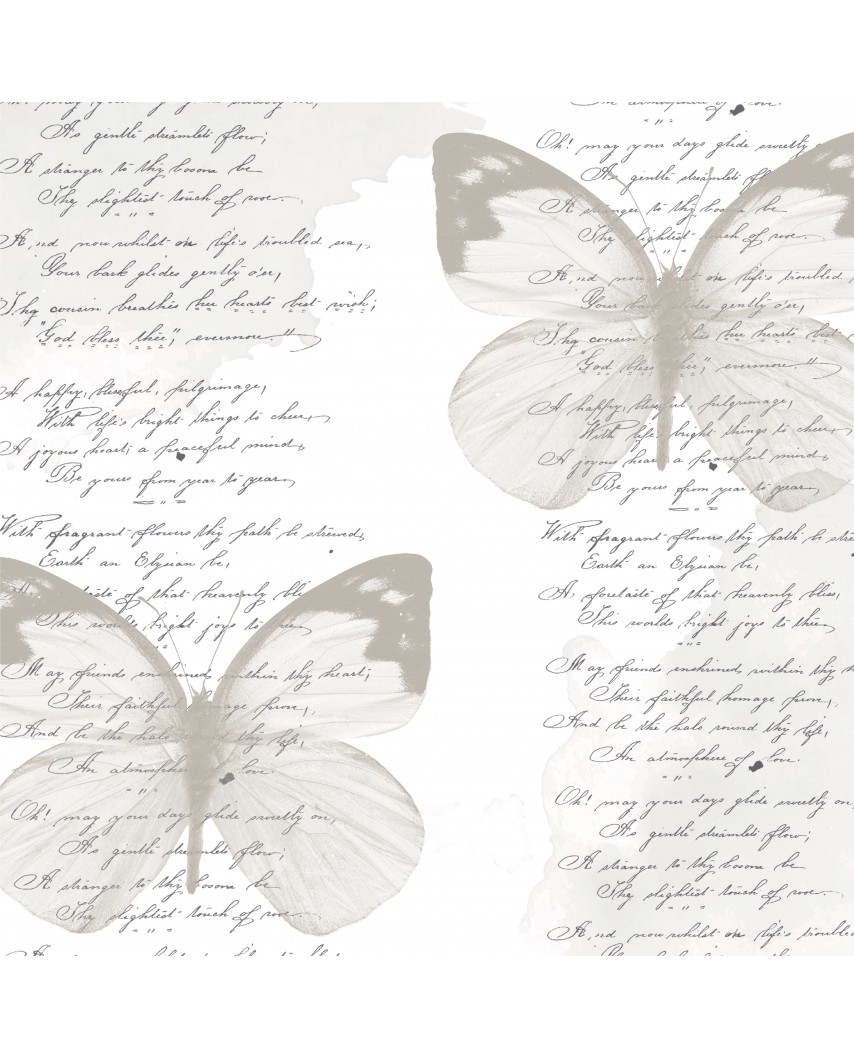 As gentle streamlets flow;
A stranger to thy bosom be
The slightest touch of woe.
And now whilst on life's troubled sea,
Your bark glides gently o'er,
Thy cousin breathes her hearts best wish;
"God bless thee", evermore."
A happy, blissful, pilgrimage,
With life's bright things to cheer,
A joyous heart; a peaceful mind,
Be yours from year to year,
With fragrant flowers thy path be strewed,
Earth an Elysian be,
of that heavenly
This worlds bright joys to thee,
May friends enshrined within thy heart;
Their faithful homage prove,
And be the halo round thy life,
An atmosphere of love
Oh! may your days glide sweetly on,
As gentle streamlets flow;
A stranger to thy bosom be
The slightest touch of woe.
of love.
Oh! may your days glide sweetly
As gentle streamlets
A stranger to thy bosom be
The slightest touch of woe.
And now on life's troubled
Your bark glides gently o'er,
Thy cousin breathes her hearts best
"God bless thee", evermore."
A happy, blissful, pilgrimage,
With life's bright things to cheer,
A joyous heart; a peaceful mind,
Be yours from year to year,
With fragrant flowers thy path be
Earth an Elysian be,
A, foretaste of that heavenly bliss,
This worlds bright joys to thee,
May friends enshrined within thy
Their faithful homage prove,
And be the halo round thy life,
An atmosphere of love.
Oh! may your days glide sweetly on,
As gentle streamlets flow;
A stranger to thy bosom be
The slightest touch of woe.
And now whilst on life's